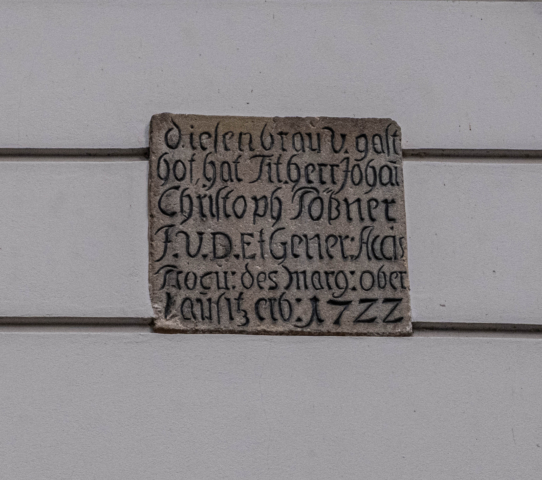 diesen brau v. gast
hof hat Tit. herr Johañ
Christoph Tößner
J.V.D. Et Gener: Accis
Procu: des marg: ober
Lausitz erb: 1722